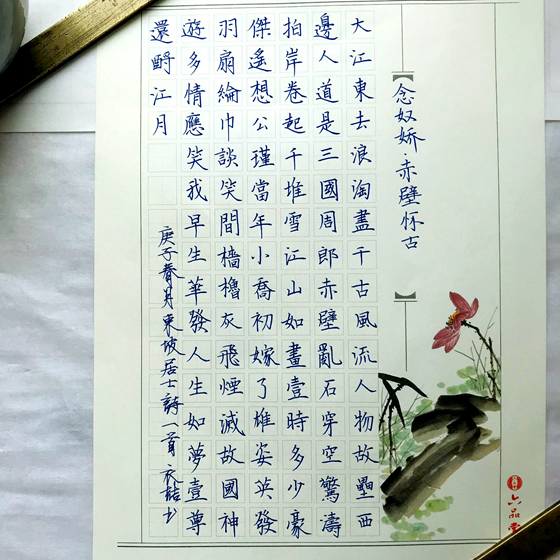 【念奴娇·赤壁怀古】
大江東去浪淘盡千古風流人物故壘西
邊人道是三國周郎赤壁亂石穿空驚濤
拍岸卷起千堆雪江山如畫壹時多少豪
傑遙想公瑾當年小喬初嫁了雄姿英發
羽扇綸巾談笑間檣櫓灰飛煙滅故國神
遊多情應笑我早生華發人生如夢壹尊
還酹江月
庚子春月東坡居士詩一首
六品堂